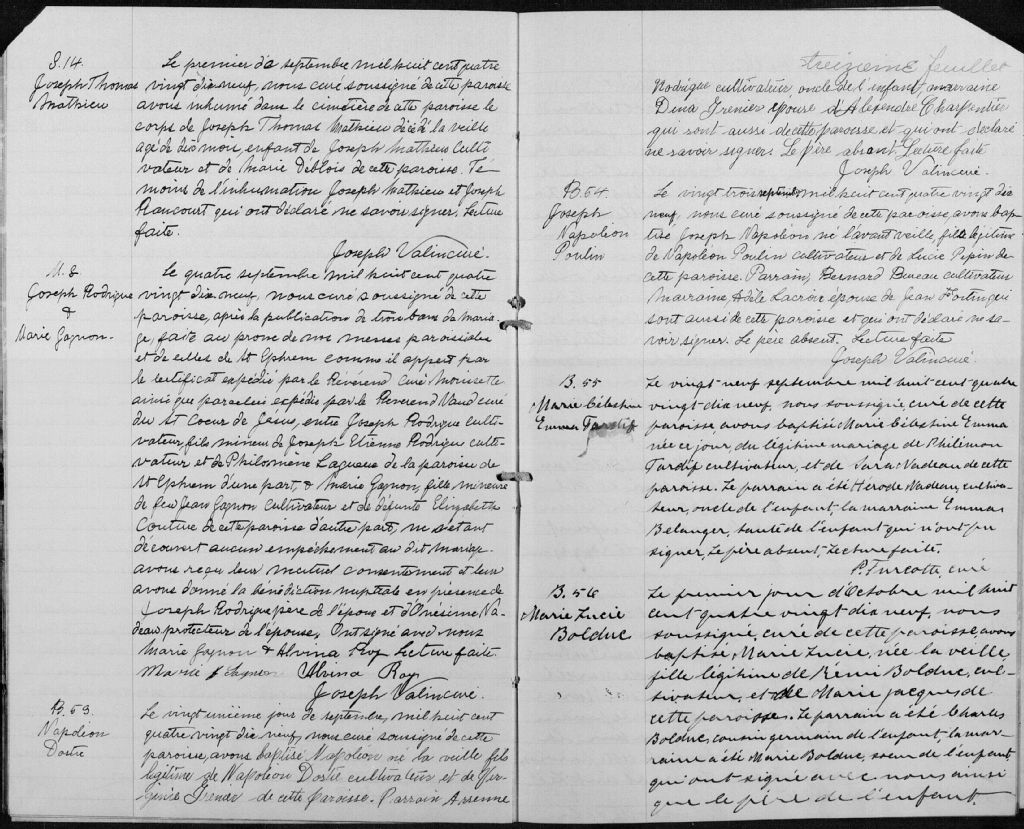 S. 14.
Joseph Thomas
Mathieu
Le premier de septembre mil huit cent quatre
vingt dix neuf, nous curé soussigné de cette paroisse
avons inhumé dans le cimetière de cette paroisse le
corps de Joseph Thomas Mathieu décédé la veille
agé de dix mois, enfant de Joseph Mathieu culti
vateur et de Marie Déblois de cette paroisse. Té
moins de l'inhumation Joseph Mathieu et Joseph
Rancourt qui ont déclaré ne savoir signer. Lecture
faite.
Joseph Valin curé.
M. 8
Joseph Rodrigue
&
Marie Gagnon.
Le quatre septembre mil huit cent quatre
vingt dix neuf, nous curé soussigné de cette
paroisse, après la publication de trois bans de maria
ge, faite au prone de nos messes paroissiales
et de celles de St Ephrem comme il appert par
le certificat expédié par le Révérend curé
ainsi que par celui expédié par le Reverend curé
du St Coeur de Jésus, entre Joseph Rodrigue culti
vateur, fils mineur de Joseph Etienne Rodrigue culti-
vateur et de Philomène Lagueux de la paroisse de
St Ephrem d'une part, & Marie Gagnon, fille mineure
de feu Jean Gagnon cultivateur et de défunte Elizabeth
Couture de cette paroisse d'autre part, ne s'étant
découvert aucun empêchement au dit mariage
avons reçu leur mutuel consentement et leur
avons donné la bénédiction nuptiale en présence de
Joseph Rodrigue père de l'époux et d'Onésime Na-
deau protecteur de l'épouse. Ont signé avec nous
Marie Gagnon & Alvina Roy. Lecture faite.
Marie Gagnon Alvina Roy
Joseph Valin curé.
B. 53
Napoléon
Dostie
Le vingt unième jour de septembre, mil huit cent
quatre vingt dix neuf, nous curé soussigné de cette
paroisse, avons baptisé Napoléon né la veille fils
légitime de Napoléon Dostie cultivateur et de Vir-
ginie Grenier de cette Paroisse. Parrain Arsenne
treizieme feuillet
Rodrigue cultivateur, oncle de l'enfant, marraine
Dina Grenier épouse d'Alexandre Charpentier
qui sont aussi de cette paroisse et qui ont déclaré
ne savoir signer. Le Père absent. Lecture faite
Joseph Valin curé.
B. 54.
Joseph
Napoléon
Poulin
Le vingt trois septembre mil huit cent quatre vingt dix
neuf, nous curé soussigné de cette paroisse, avons bap
tisé Joseph Napoléon né l'avant veille, fils légitime
de Napoléon Poulin cultivateur et de Lucie Pepin de
cette paroisse. Parrain, Bernard Bureau cultivateur
Marraine, Adèle Lacroix épouse de Jean Fortin qui
sont aussi de cette paroisse et qui ont déclaré ne sa-
voir signer. Le père absent. Lecture faite
Joseph Valin curé.
B. 55
Marie Célestine
Emma Tardif
Le vingt neuf septembre mil huit cent quatre
vingt dix neuf, nous soussigné, curé de cette
paroisse avons baptisé Marie Célestine Emma
née ce jour, du légitime mariage de Philémon
Tardif cultivateur, et de Sara Nadeau de cette
paroisse. Le parrain a été Hérode Nadeau, cultiva-
teur, oncle de l'enfant la marraine Emma
Belanger, tante de l'enfant qui n'ont pu
signer, Le père absent, Lecture faite.
P. Turcotte, curé
B. 56
Marie Lucie
Bolduc
Le premier jour d'Octobre mil huit
cent quatre vingt dix neuf, nous
soussigné, curé de cette paroisse, avons
baptisé Marie Lucie, née la veille
fille légitime de Rémi Bolduc, cul-
tivateur, et de Marie Jacques de
cette paroisse. Le parrain a été Charles
Bolduc, cousin germain de l'enfant, la mar-
raine a été Marie Bolduc, soeur de l'enfant,
qui ont signé avec nous ainsi
que le père de l'enfant.